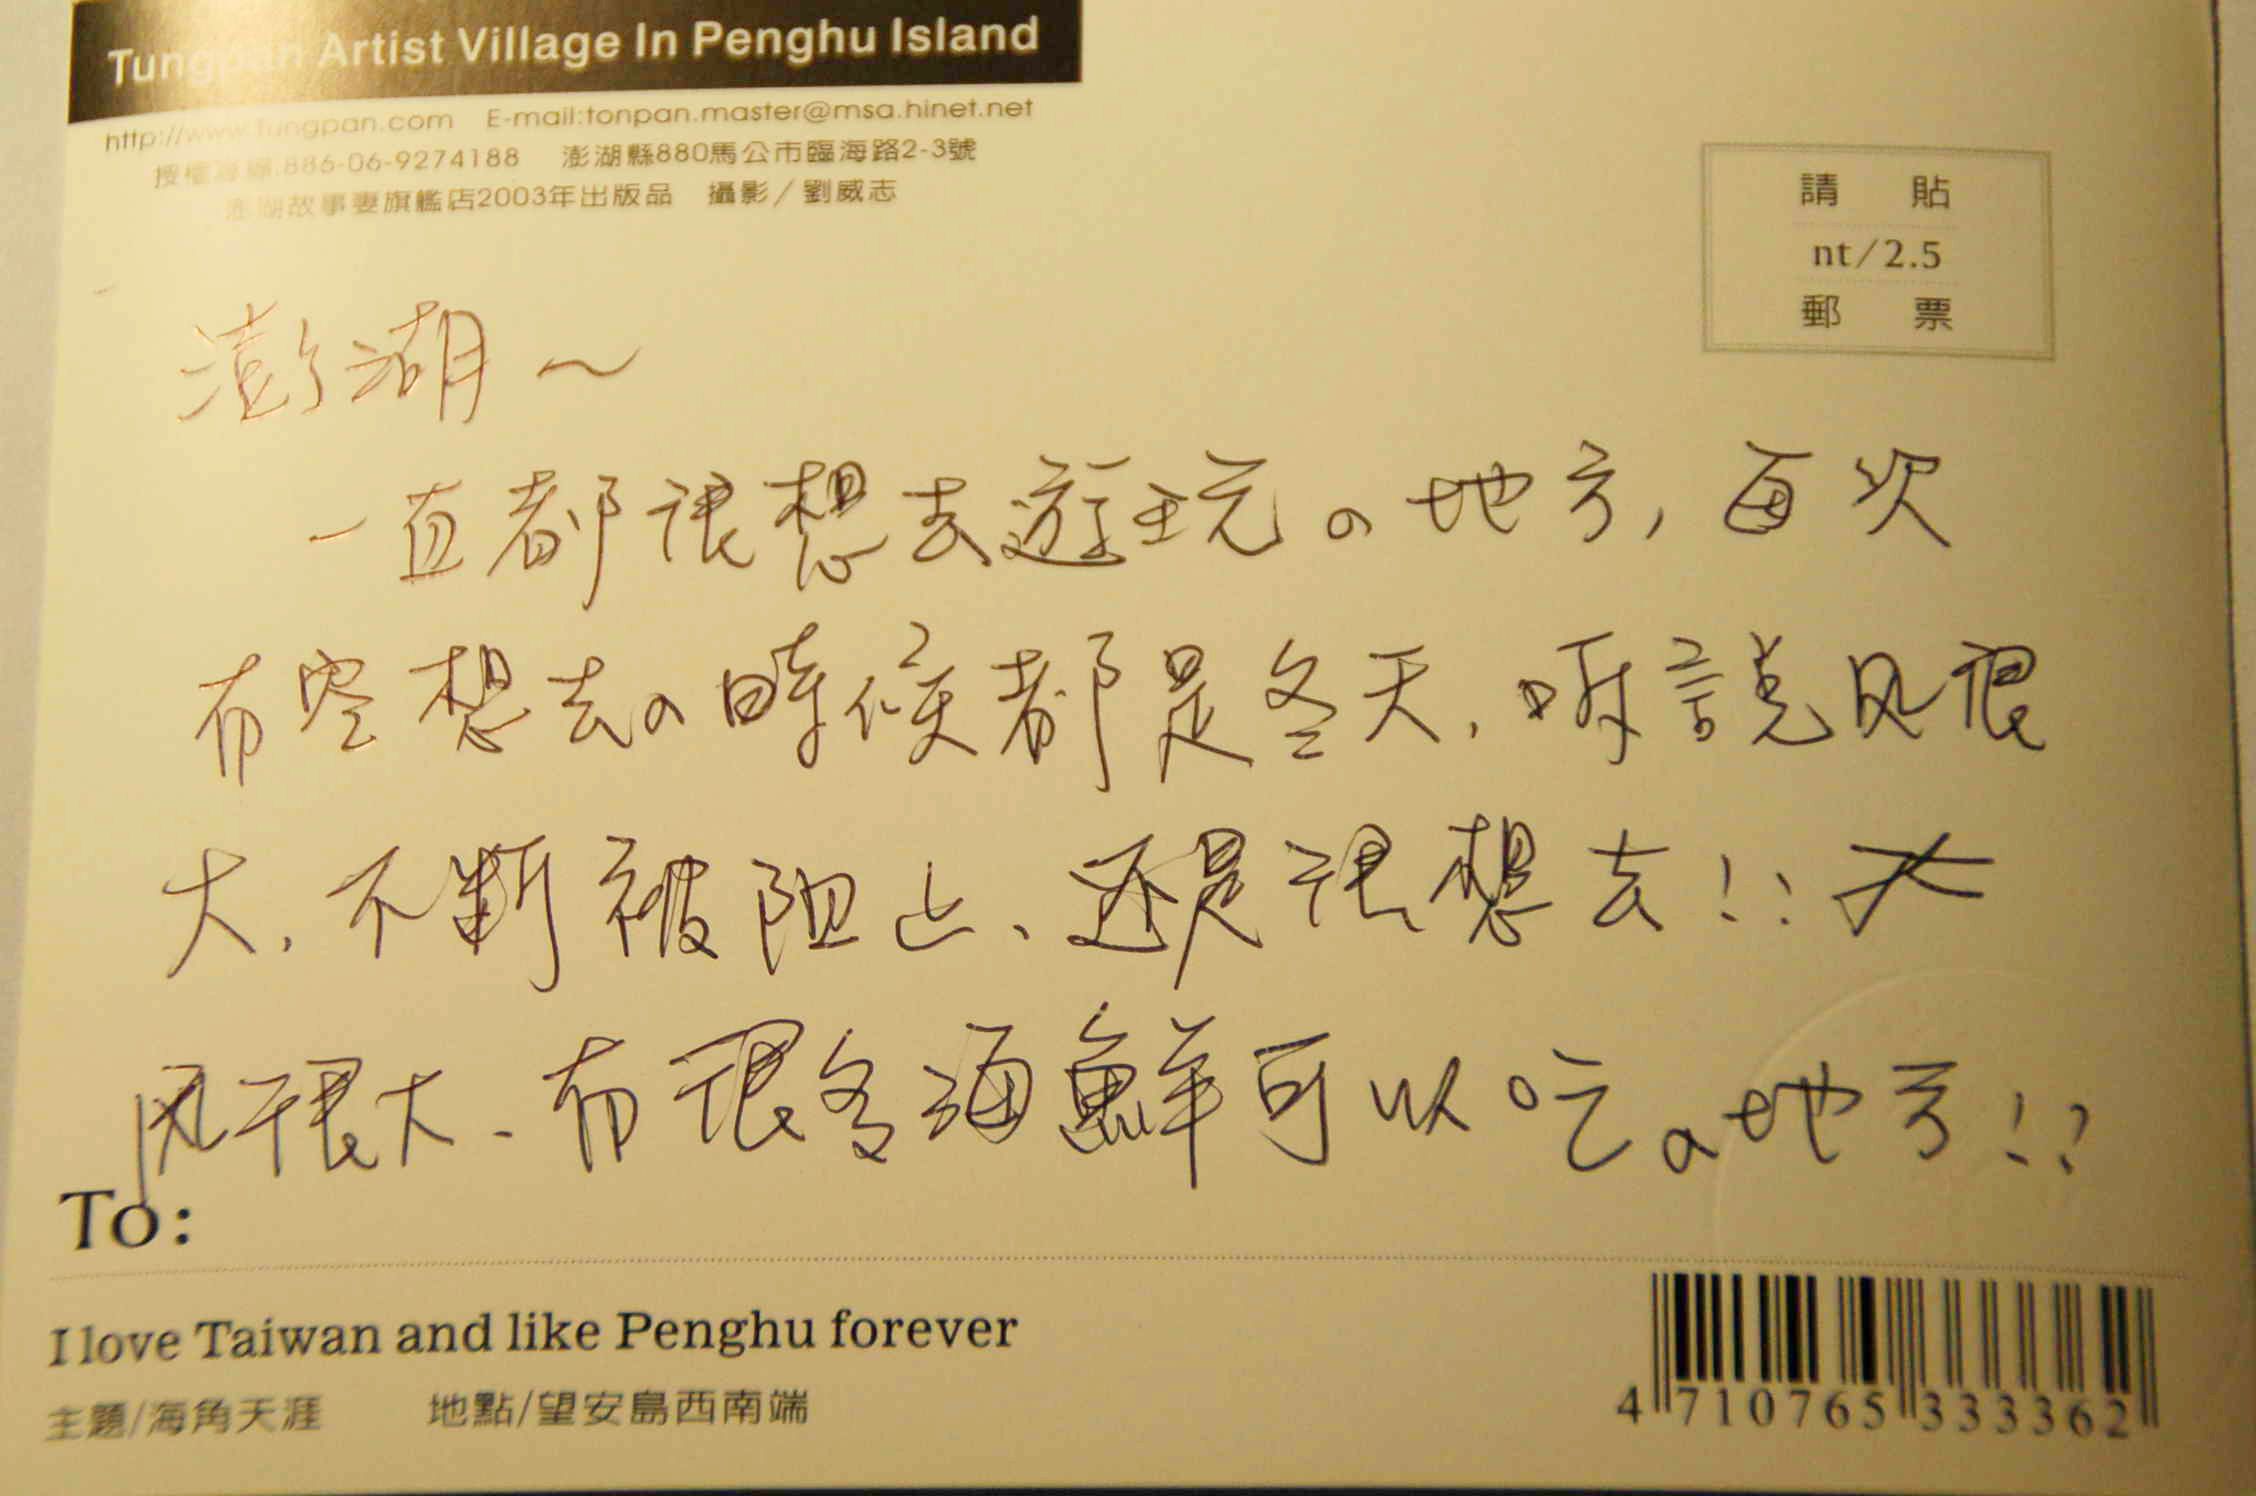 Tungpan Artist Village In Penghu Island
http://www.tungpan.com E-mail:tonpan.master@msa.hinet.net
授權專線.886-06-9274188 澎湖縣880馬公市臨海路2-3號
澎湖故事妻旗艦店2003年出版品 攝影/劉威志
請 貼
nt/2.5
郵 票
澎湖~
一直都很想去遊玩の地方,每次
有空想去の時候都是冬天,听說风很
大,不斷被阻止、还是很想去!!
风很大、有很多海鮮可以吃の地方!!
To:
I love Taiwan and like Penghu forever
主題/海角天涯 地點/望安島西南端
4 710765 333362